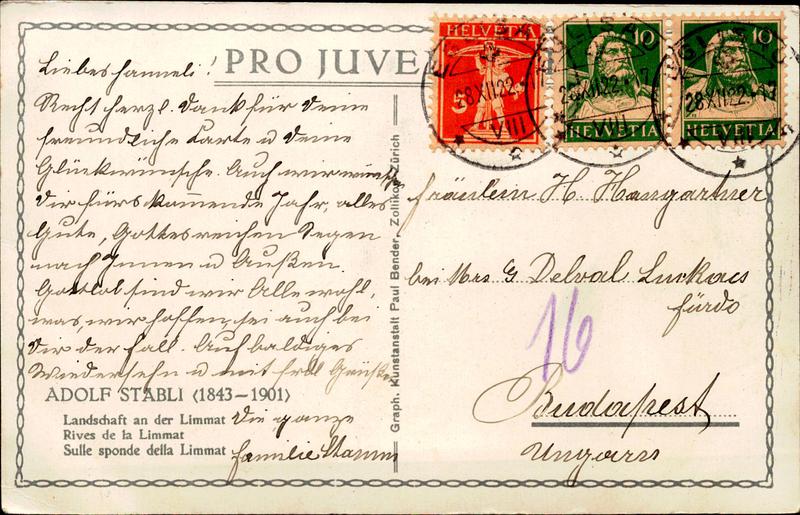 HELVETIA
5
10
HELVETIA
10
HELVETIA
28.XII.22.
VIII
28.XII.22.
VIII
28.XII.22.
VIII
PRO JUVE
Liebes Hanneli!
Recht herzl. Dank für Deine
freundliche Karte u Deine
Glückwünsche. Auch wir wünschen
Dir fürs kommende Jahr, alles
Gute, Gottesreichen Segen
nach Innen u Außen.
Gottlob sind wir Alle wohl,
was, wir hoffen, sei auch bei
Dir der Fall. Auf baldiges
Wiedersehn u mit frdl Grüßen
Die ganze
Familie Stamm
ADOLF STÄBLI (1843–1901)
Landschaft an der Limmat
Rives de la Limmat
Sulle sponde della Limmat
Graph. Kunstanstalt Paul Bender, Zollikon-Zürich
Fräulein H. Hangartner
bei Mrs G Delval Lukacs
fürdo
16
Budapest
Ungarn